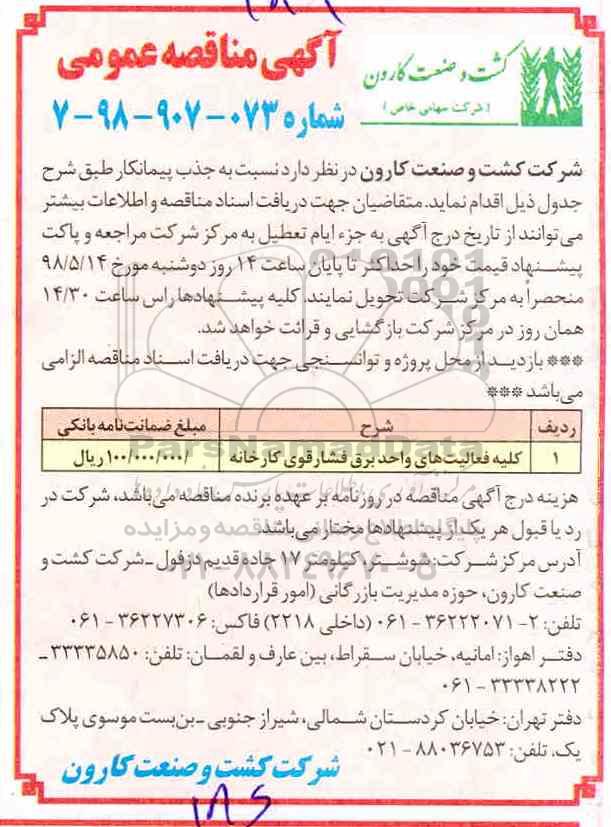 آگهی مناقصه عمومی
شماره ۰۷۳-۹۰۷-۹۸-۷
کشت و صنعت کارون
(شرکت سهامی خاص)
شرکت کشت و صنعت کارون در نظر دارد نسبت به جذب پیمانکار طبق شرح
جدول ذیل اقدام نماید. متقاضیان جهت دریافت اسناد مناقصه و اطلاعات بیشتر
می توانند از تاریخ درج آگهی به جزء ایام تعطیل به مرکز شرکت مراجعه و پاکت
پیشنهاد قیمت خود را حداکثر تا پایان ساعت ۱۴ روز دوشنبه مورخ ۹۸/۵/۱۴
منحصراً به مرکز شرکت تحویل نمایند. کلیه پیشنهادها راس ساعت ۱۴/۳۰
همان روز در مرکز شرکت بازگشایی و قرائت خواهد شد.
*** بازدید از محل پروژه و توانسنجی جهت دریافت اسناد مناقصه الزامی
می باشد ***
ردیف شرح مبلغ ضمانت‌نامه بانکی
۱ کلیه فعالیت‌های واحد برق فشار قوی کارخانه ۱۰۰/۰۰۰/۰۰۰/ ریال
هزینه درج آگهی مناقصه در روزنامه بر عهده برنده مناقصه می‌باشد، شرکت در
رد یا قبول هر یک از پیشنهادها مختار می باشد.
آدرس مرکز شرکت: شوشتر، کیلومتر ۱۷ جاده قدیم دزفول ـ شرکت کشت و
صنعت کارون، حوزه مدیریت بازرگانی (امور قراردادها)
تلفن: ۲-۳۶۲۲۲۰۷۱ - ۰۶۱ (داخلی ۲۲۱۸) فاکس: ۳۶۲۲۷۳۰۶ - ۰۶۱
دفتر اهواز: امانیه، خیابان سقراط، بین عارف و لقمان: تلفن: ۳۳۳۳۵۸۵۰ ـ
۳۳۳۳۸۲۲۲ - ۰۶۱
دفتر تهران: خیابان کردستان شمالی، شیراز جنوبی ـ بن‌بست موسوی پلاک
یک. تلفن: ۸۸۰۳۶۷۵۳ - ۰۲۱
شرکت کشت و صنعت کارون
ParsNamadData
۰۲۱-۸۸۳۴۹۶۷۰-۵